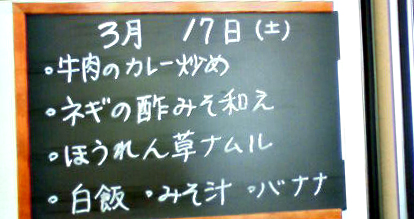 3月 17日(土)
。牛肉のカレー炒め
。ネギの酢みそ和え
。ほうれん草ナムル
。白飯 ・みそ汁 ・バナナ